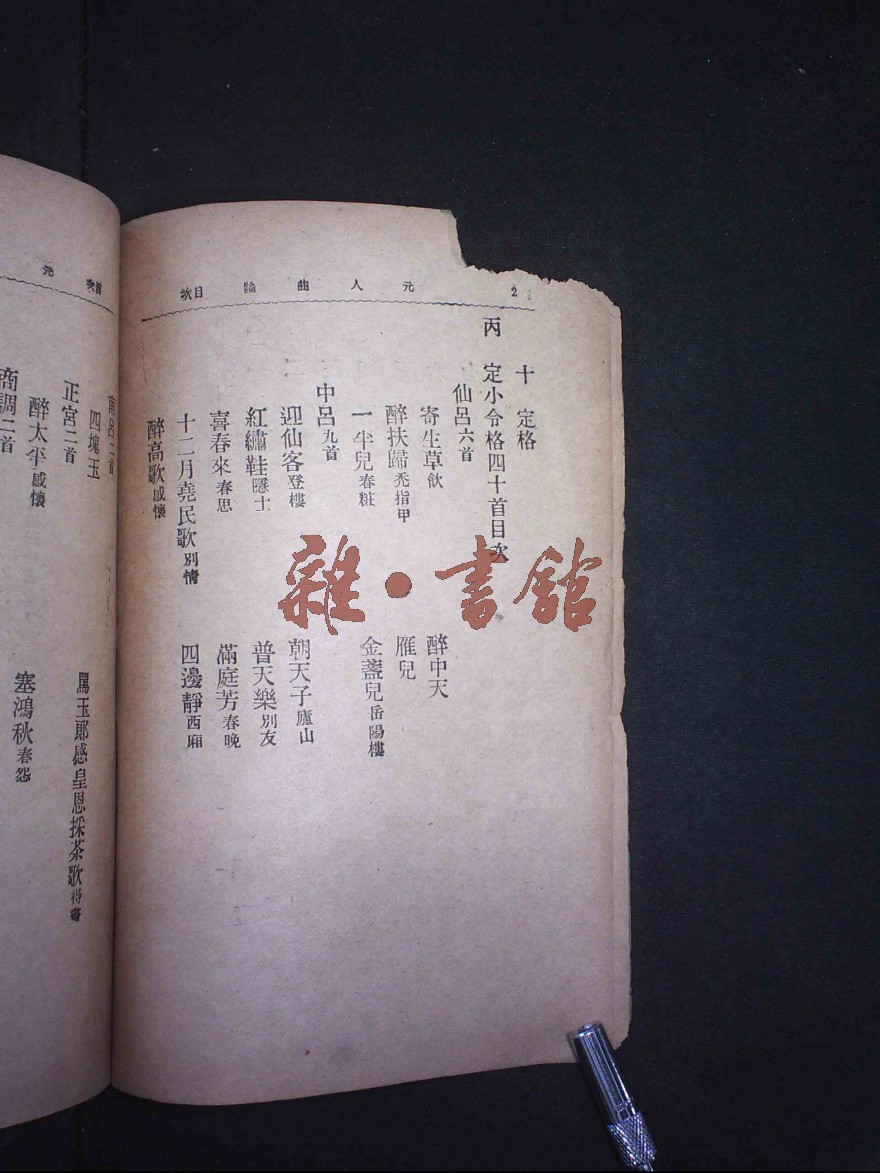 元人曲論 目次 2
十 定格
丙 定小令格四十首目次
仙呂六首
寄生草飲 醉中天
醉扶歸禿指甲 雁兒
一半兒春粧 金盞兒岳陽樓
中呂九首
迎仙客登樓 朝天子廬山
紅繡鞋隱士 普天樂別友
喜春來春思 滿庭芳春晚
十二月堯民歌別情 四邊靜西廂
醉高歌感懷
雜·書館
元 目次
南呂二首
四塊玉 罵玉郎感皇恩採茶歌得書
正宮二首
醉太平感懷 塞鴻秋春怨
商調二首